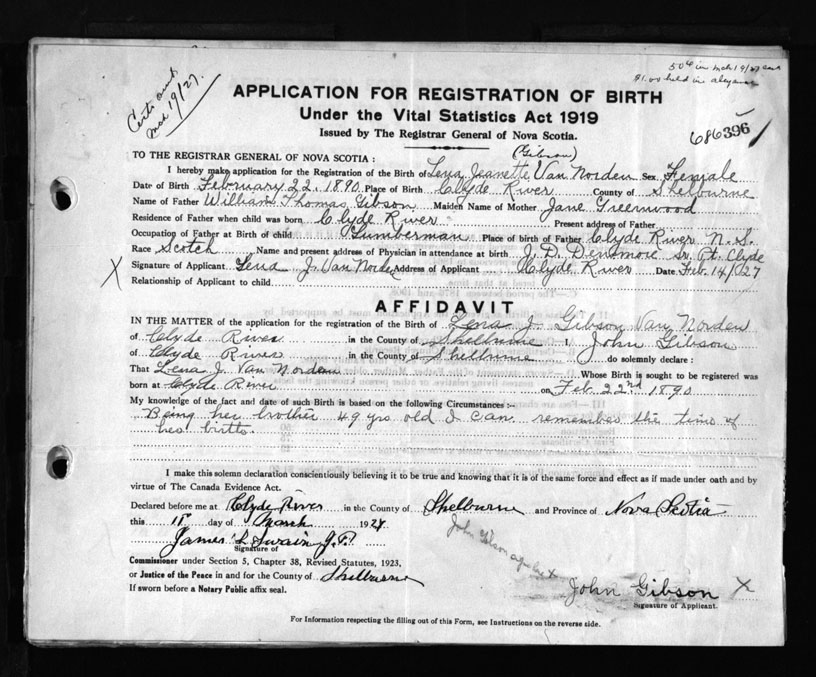 50¢ in Mch 19/27
$1.00 held in abeyance
Certs
Mch 19/27.
APPLICATION FOR REGISTRATION OF BIRTH
Under the Vital Statistics Act 1919
Issued by The Registrar General of Nova Scotia.
686396
(Gibson)
TO THE REGISTRAR GENERAL OF NOVA SCOTIA :
I hereby make application for the Registration of the Birth of Lena Jeanette Van Norden Sex Female
Date of Birth February 22. 1890 Place of Birth Clyde River County of Shelburne
Name of Father William Thomas Gibson Maiden Name of Mother Jane Greenwood
Residence of Father when child was born Clyde River Present address of Father
Occupation of Father at Birth of child Lumberman Place of birth of Father Clyde River N. S.
Race Scotch Name and present address of Physician in attendance at birth J. D. Densmore sr. Pt. Clyde
X Signature of Applicant Lena J. Van Norden Address of Applicant Clyde River Date Feb. 14/27
Relationship of Applicant to child
AFFIDAVIT
IN THE MATTER of the application for the registration of the Birth of Lena J. Gibson Van Norden
of Clyde River in the County of Shelburne I, John Gibson
of Clyde River in the County of Shelburne do solemnly declare :
That Lena J. Van Norden Whose Birth is sought to be registered was
born at Clyde River on Feb. 22nd 1890
My knowledge of the fact and date of such Birth is based on the following Circumstances :-
Being her brother 49 yrs old I can remember the time of
her birth.
I make this solemn declaration conscientiously believing it to be true and knowing that it is of the same force and effect as if made under oath and by
virtue of The Canada Evidence Act.
Declared before me at Clyde River in the County of Shelburne and Province of Nova Scotia
this 11 day of March 1927
James L Swain J.P.
Signature of
John Gibson
Commissioner under Section 5, Chapter 38, Revised Statutes, 1923,
or Justice of the Peace in and for the County of Shelburne
If sworn before a Notary Public affix seal.
John Gibson X
Signature of Applicant.
For Information respecting the filling out of this Form, see Instructions on the reverse side.